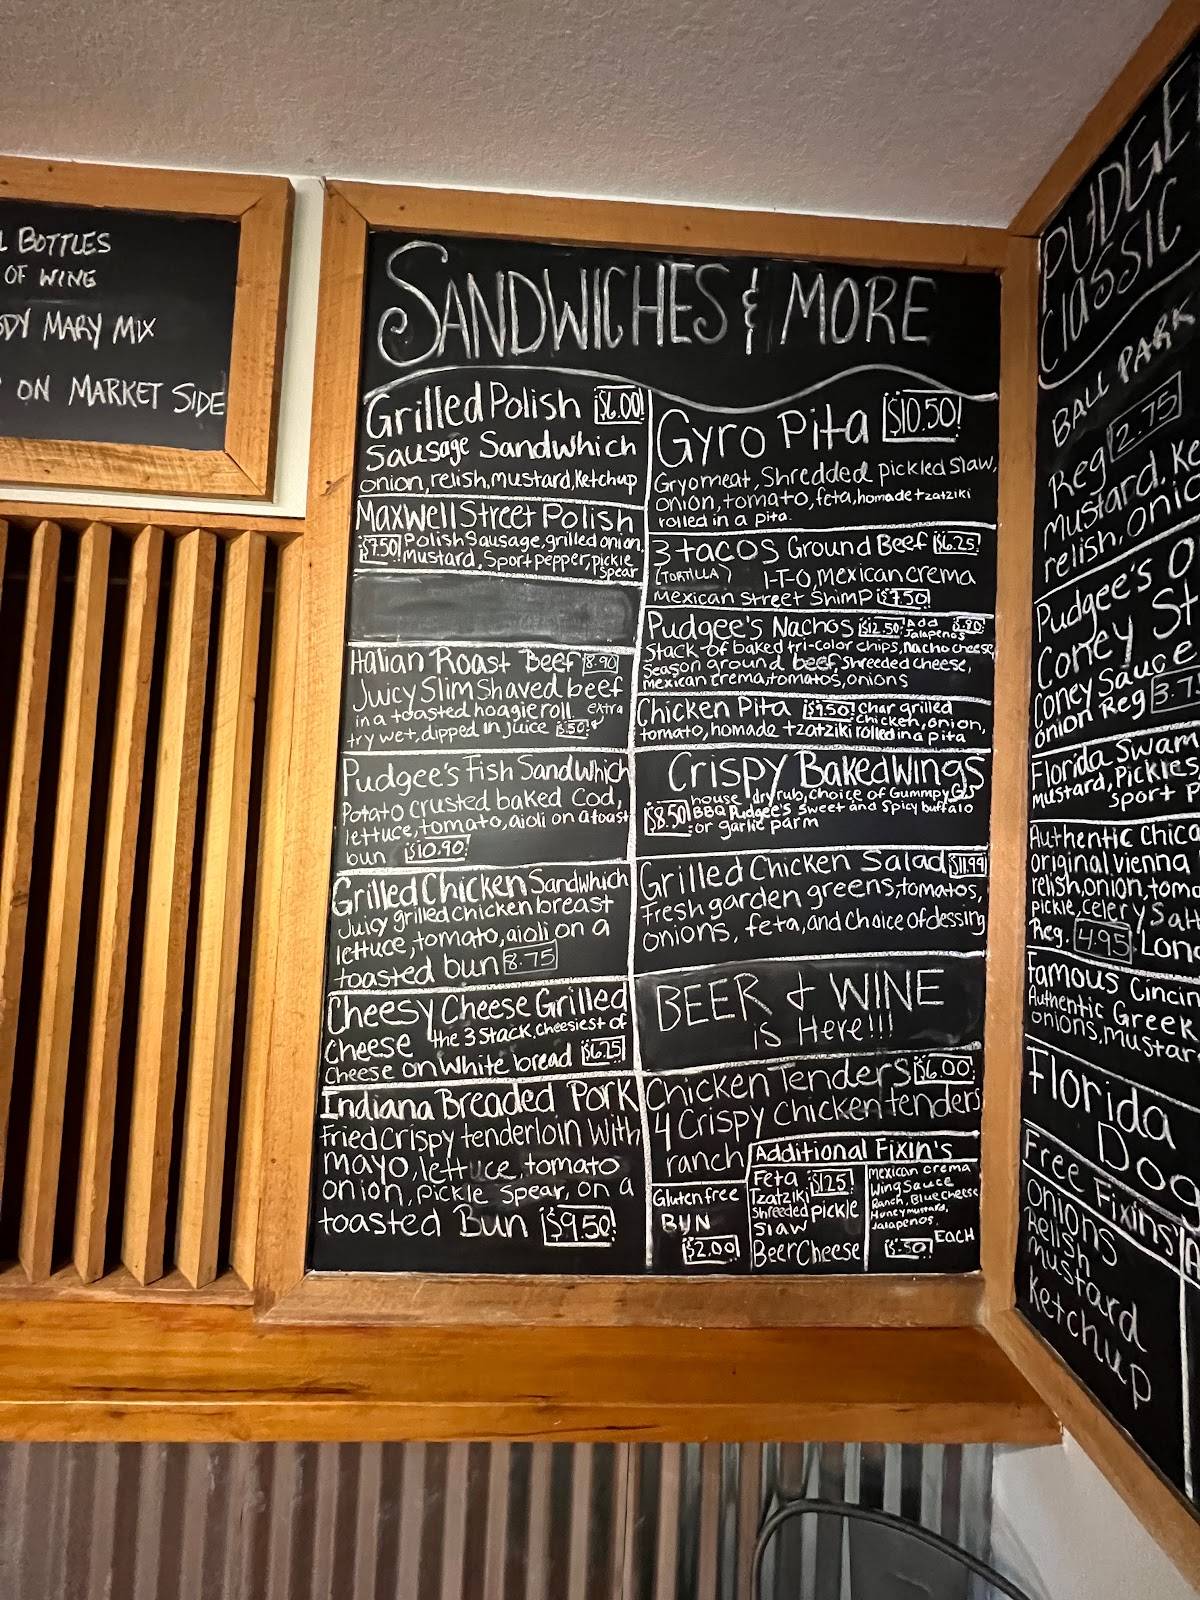 L BOTTLES
OF WING
DY MARY MIX
ON MARKET SIDE
SANDWICHES & MORE
Grilled Polish $6.00!
Sausage Sandwhich
onion, relish, mustard, Ketchup
Maxwell Street Polish
$7.50! Polish Sausage, grilled onion,
Mustard, Sport pepper, pickle
Spear
Italian Roast Beef 8.90
Juicy Slim Shaved beef
in a toasted hoagie roll extra
try wet, dipped in juice $.50!
Pudgee's Fish Sandwhich
Potato crusted baked Cod,
lettuce, tomato, aioli on a toast
bun $10.90!
Grilled Chicken Sandwhich
Juicy grilled chicken breast
lettuce, tomato, aioli on a
toasted bun 8.75
Cheesy Cheese Grilled
Cheese the 3 Stack. cheesiest of
Cheese on white bread $6.25!
Indiana Breaded Pork
Fried Crispy tenderloin with
mayo, lettuce, tomato
onion, pickle spear, on a
toasted Bun $9.50!
Gyro Pita $10.50!
Gryomeat, Shredded pickled slaw,
onion, tomato, feta, homade tzatziki
rolled in a pita.
3 tacos Ground Beef $6.25!
(TORTILLA) L-T-O, mexican crema
Mexican Street Shimp $7.50!
Pudgee's Nachos $12.50! Add Jalapenos $.80!
Stack of baked tri-color chips, nacho cheese,
Season ground beef, Shreeded cheese,
mexican crema, tomatos, onions
Chicken Pita $9.50! Char grilled
Chicken, onion,
tomato, homade tzatziki rolled in a pita
Crispy Baked Wings
house dry rub, choice of
$8.50! BBQ Pudgee's Sweet and Spicy buffalo
or garlic parm
Grilled Chicken Salad $11.99
Fresh garden greens, tomatos,
onions, feta, and choice of dessing
BEER & WINE
is Here!!!
Chicken Tenders $6.00!
4 Crispy Chicken tenders
ranch
Gluten free
BUN
$2.00!
Additional Fixin's
Feta $1.25!
Tzatziki
Shreeded pickle
Slaw
Beer Cheese
Mexican crema
Wing Sauce
Ranch, Blue cheese
Honey mustard,
Jalapenos,
$.50! EACH
PUDGE
CLASSIC
BALL PARK
Reg 2.75
mustard, Ke
relish, onio
Pudgee's O
Coney St
Coney Sauce
onion Reg 3.7
Florida Swam
mustard, Pickles
sport P
Authentic Chica
original vienna
relish, onion, toma
pickle, celery Salt
Reg. 4.95 Lon
Famous Cincin
Authentic Greek
onions, mustar
Florida
Do
Free Fixins'
Onions
Relish
mustard
Ketchup